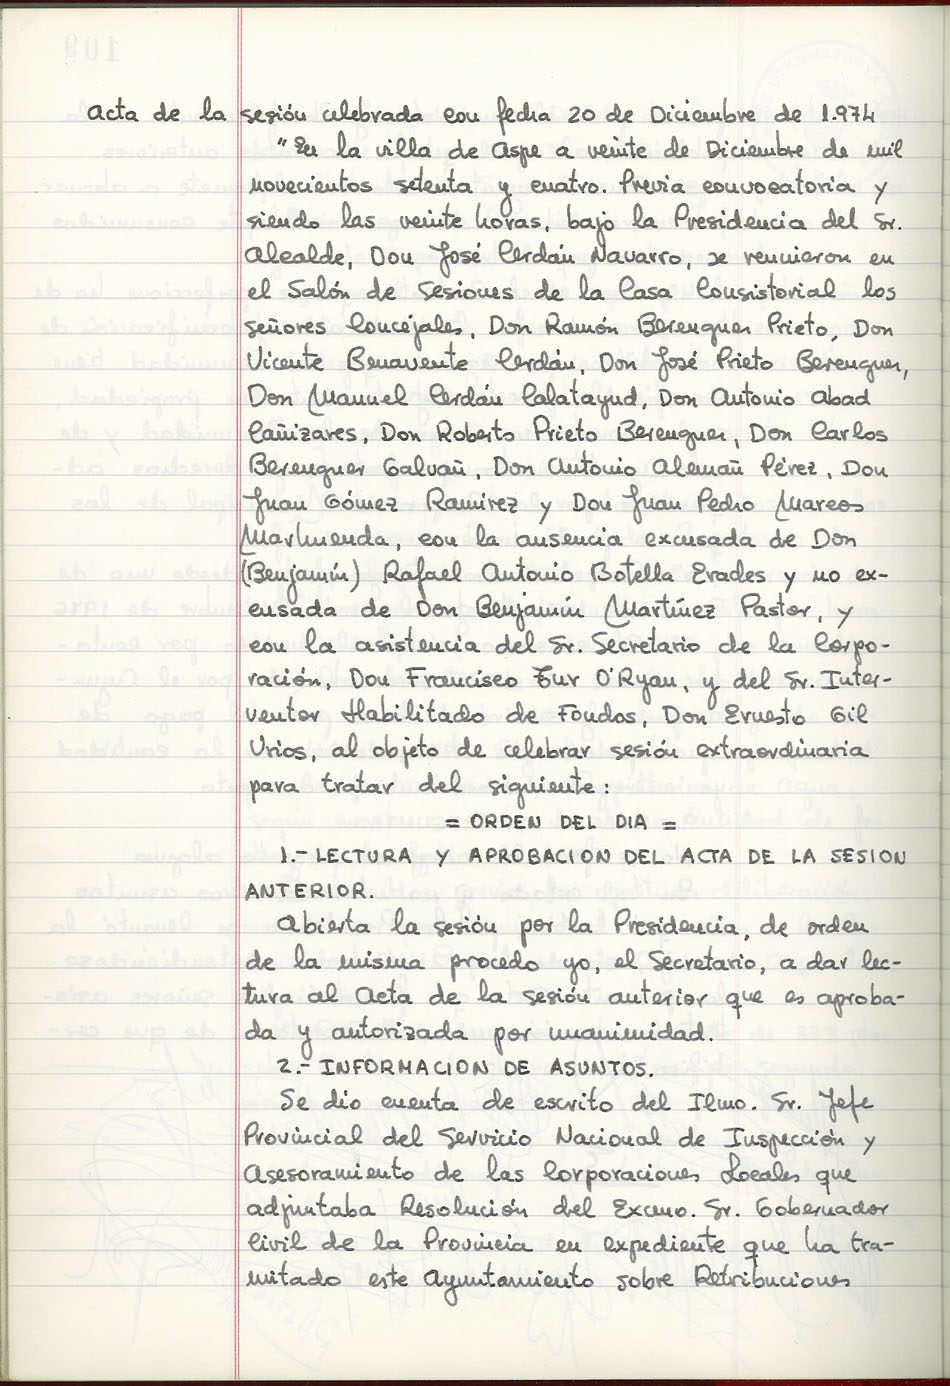 Acta de la sesión celebrada con fecha 20 de Diciembre de 1.974
"En la villa de Aspe a veinte de Diciembre de mil
novecientos setenta y cuatro. Previa convocatoria y
siendo las veinte horas, bajo la Presidencia del Sr.
Alcalde, Don José Cerdán Navarro, se reunieron en
el Salón de Sesiones de la Casa Consistorial los
señores Concejales, Don Ramón Berenguer Prieto, Don
Vicente Benavente Cerdán, Don José Prieto Berenguer,
Don Manuel Cerdán Calatayud, Don Antonio Abad
Cañizares, Don Roberto Prieto Berenguer, Don Carlos
Berenguer Galvañ, Don Antonio Alemañ Pérez, Don
Juan Gómez Ramirez y Don Juan Pedro Marcos
Marhuenda, con la ausencia excusada de Don
(Benjamín) Rafael Antonio Botella Erades y no ex-
cusada de Don Benjamín Martínez Pastor, y
con la asistencia del Sr. Secretario de la Corpo-
ración, Don Francisco Tur O'Ryan, y del Sr. Inter-
ventor Habilitado de Fondos, Don Ernesto Gil
Urios, al objeto de celebrar sesión extraordinaria
para tratar del siguiente:
= ORDEN DEL DIA =
1.- LECTURA Y APROBACION DEL ACTA DE LA SESION
ANTERIOR.
Abierta la sesión por la Presidencia, de orden
de la misma procedo yo, el Secretario, a dar lec-
tura al Acta de la sesión anterior que es aproba-
da y autorizada por unanimidad.
2.- INFORMACION DE ASUNTOS.
Se dio cuenta de escrito del Ilmo. Sr. Jefe
Provincial del Servicio Nacional de Inspección y
Asesoramiento de las Corporaciones Locales que
adjuntaba Resolución del Excmo. Sr. Gobernador
Civil de la Provincia en expediente que ha tra-
mitado este Ayuntamiento sobre Retribuciones